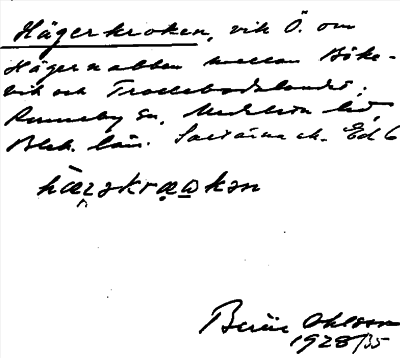 Hägerkroken, vik Ö. om
Hägernabben mellan Böke-
vik och Trollebodslandet;
Ronneby sn, Medelsta hd,
Blek. län. Ed 6
hæ̀ʒəkræωkən
Bertil Ohlsson
1928/35